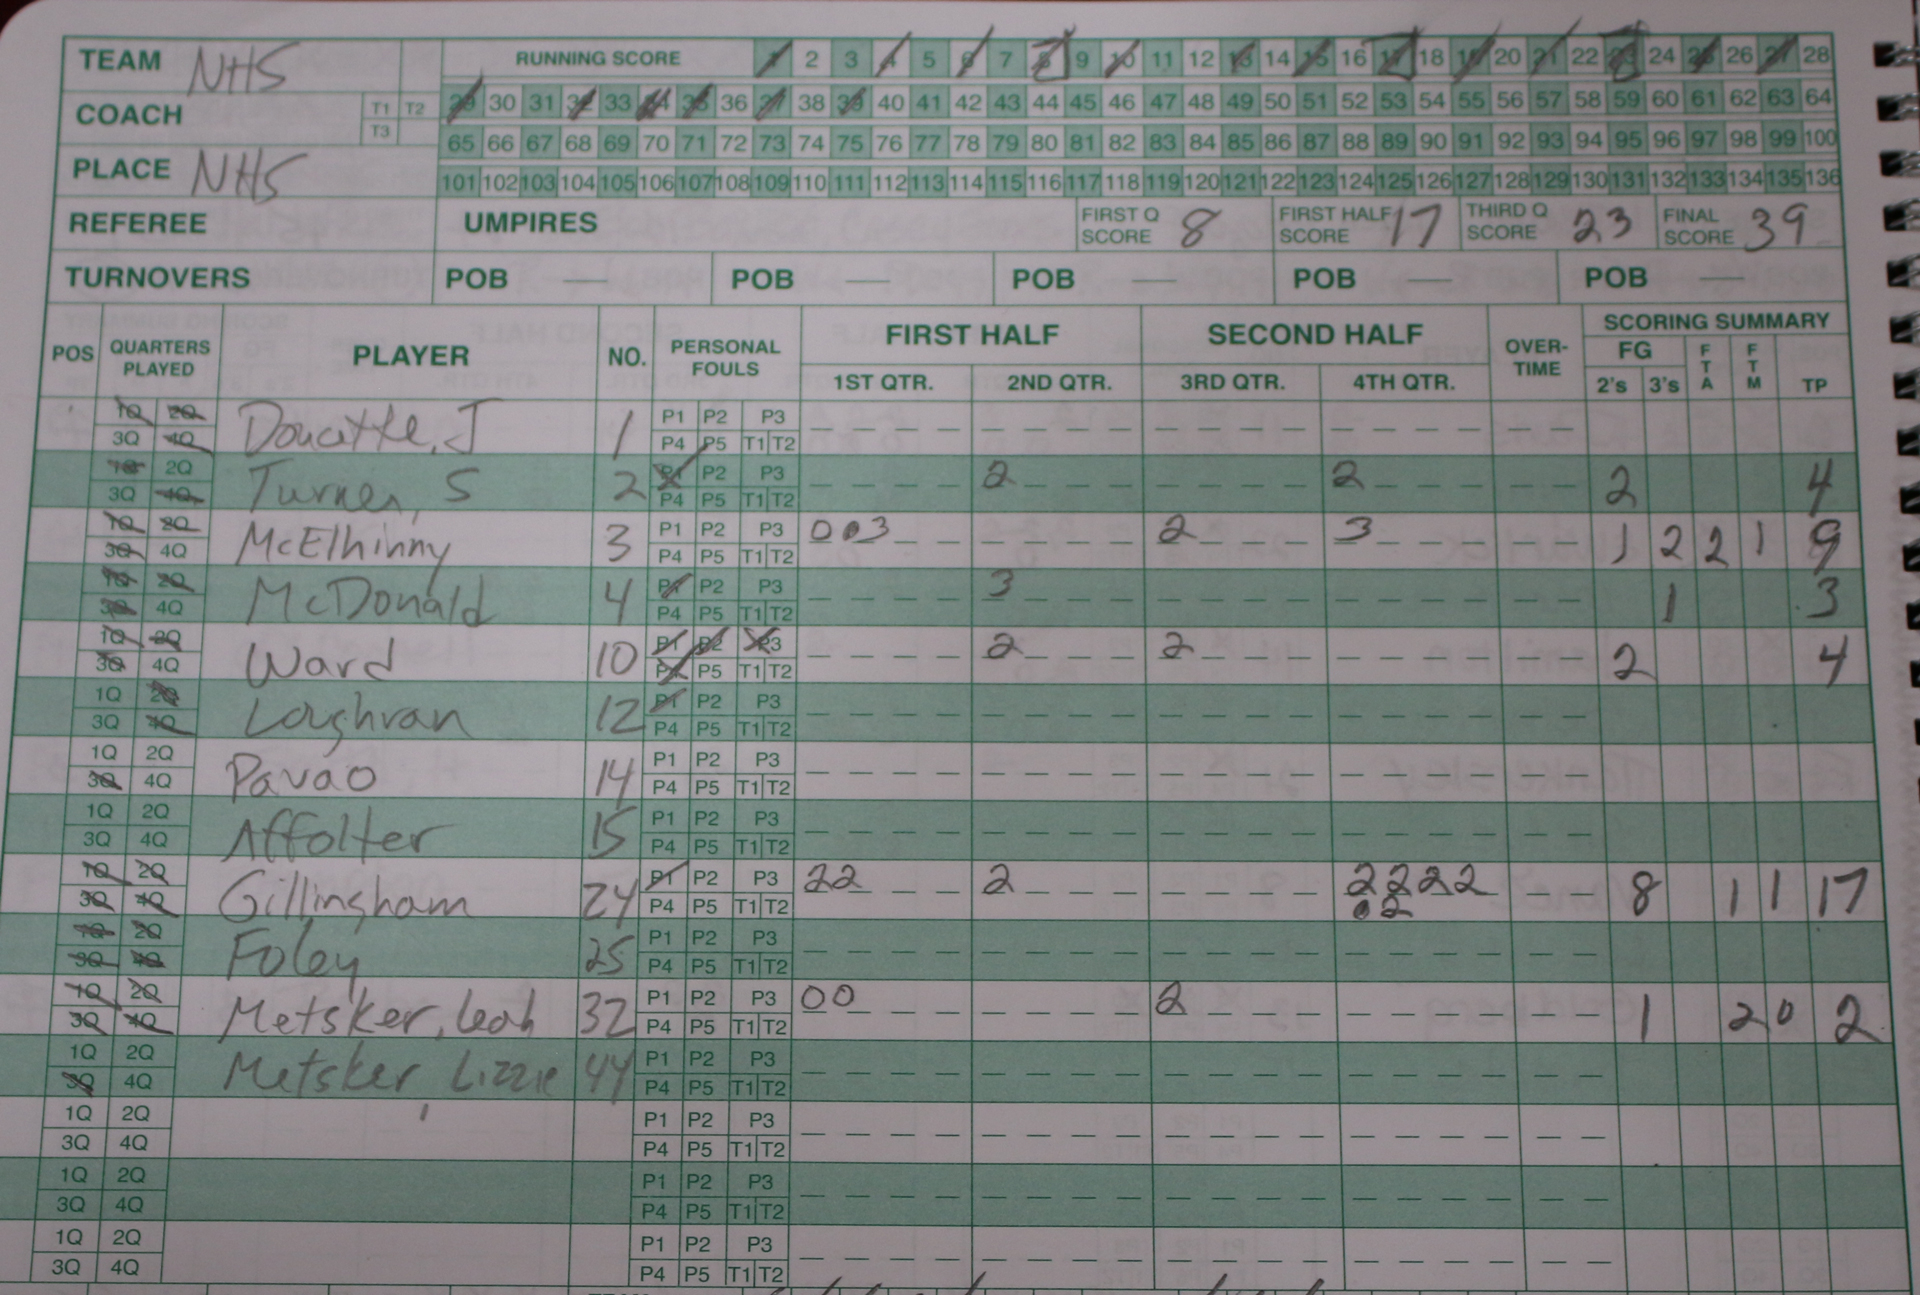 TEAM NHS RUNNING SCORE 1 2 3 4 5 6 7 8 9 10 11 12 13 14 15 16 17 18 19 20 21 22 23 24 25 26 27 28
29 30 31 32 33 34 35 36 37 38 39 40 41 42 43 44 45 46 47 48 49 50 51 52 53 54 55 56 57 58 59 60 61 62 63 64
COACH T1 T2 T3
65 66 67 68 69 70 71 72 73 74 75 76 77 78 79 80 81 82 83 84 85 86 87 88 89 90 91 92 93 94 95 96 97 98 99 100
PLACE NHS 101 102 103 104 105 106 107 108 109 110 111 112 113 114 115 116 117 118 119 120 121 122 123 124 125 126 127 128 129 130 131 132 133 134 135 136
REFEREE UMPIRES FIRST Q SCORE 8 FIRST HALF SCORE 17 THIRD Q SCORE 23 FINAL SCORE 39
TURNOVERS POB POB POB POB POB
POS QUARTERS PLAYED PLAYER NO. PERSONAL FOULS FIRST HALF SECOND HALF OVER-TIME SCORING SUMMARY
1ST QTR. 2ND QTR. 3RD QTR. 4TH QTR. FG 2's 3's FTA FTM TP
1Q 2Q Doucette, J 1 P1 P2 P3
3Q 4Q P4 P5 T1 T2
1Q 2Q Turner, S 2 P1 P2 P3 2 2 2 4
3Q 4Q P4 P5 T1 T2
1Q 2Q McElhinny 3 P1 P2 P3 0 3 2 3 1 2 2 1 9
3Q 4Q P4 P5 T1 T2
1Q 2Q McDonald 4 P1 P2 P3 3 1 3
3Q 4Q P4 P5 T1 T2
1Q 2Q Ward 10 P1 P2 P3 2 2 2 4
3Q 4Q P4 P5 T1 T2
1Q 2Q Loughran 12 P1 P2 P3
3Q 4Q P4 P5 T1 T2
1Q 2Q Pavao 14 P1 P2 P3
3Q 4Q P4 P5 T1 T2
1Q 2Q Affolter 15 P1 P2 P3
3Q 4Q P4 P5 T1 T2
1Q 2Q Gillingham 24 P1 P2 P3 2 2 2 2 2 2 2 8 1 1 17
3Q 4Q P4 P5 T1 T2 2
1Q 2Q Foley 25 P1 P2 P3
3Q 4Q P4 P5 T1 T2
1Q 2Q Metsker, Leah 32 P1 P2 P3 0 0 2 1 2 0 2
3Q 4Q P4 P5 T1 T2
1Q 2Q Metsker, Lizzie 44 P1 P2 P3
3Q 4Q P4 P5 T1 T2
1Q 2Q P1 P2 P3
3Q 4Q P4 P5 T1 T2
1Q 2Q P1 P2 P3
3Q 4Q P4 P5 T1 T2
1Q 2Q P1 P2 P3
3Q 4Q P4 P5 T1 T2